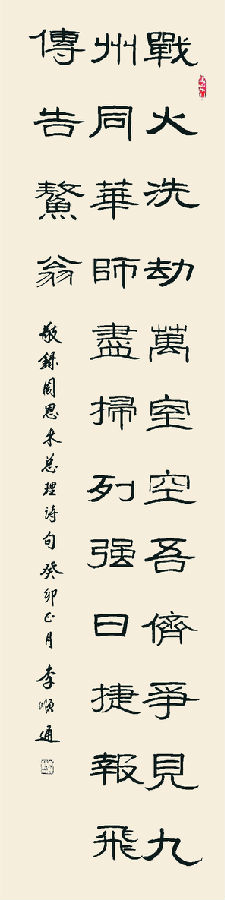 戰火洗劫萬室空吾儕爭見九
州同華師盡掃列强日捷報飛
傳告鰲翁
敬錄周恩來總理詩句癸卯正月李順通